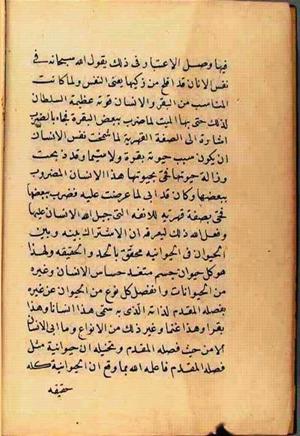 فيها وصل الاعتبار في ذلك يقول الله سبحانه في
نفس الانسان قد افلح من زكيها يعني النفس ولما كانت
المناسب من البقر والانسان قوية عظيمة السلطان
لذلك حيى بها الميت لما ضرب ببعض البقرة فجاء بالضرب
اشارة الى الصفة القهرية لما شمخت نفس الانسان
ان يكون سبب حيوته بقرة ولا سيما وقد ذبحت
وزالة حيوتها فحيى بحيوتها هذا الانسان المضروب
ببعضها وكان قد ابى لما عرضت عليه فضرب ببعضها
فحيى بصفة قهرية للانفه التي جبل الله الانسان عليها
وفعل الله ذلك ليعرفه ان الاشتراك بينه وبين
الحيوان في الحيوانية محقق بالحد والحقيقه ولهذا
هو كل حيوان جسم متغذ حساس الانسان وغيره
من الحيوانات وانفصل كل نوع من الحيوان عن غيره
بفصله المقدم لذاته الذى به سمى هذا انسانا وهذا
بقرا وهذا غنما وغير ذلك من الانواع وما ابى الانسان
الا من حيث فصله المقدم وتخيله ان حيوانية مثل
فصله المقدم فاعلمه الله بما وقع ان الحيوانية كله
حقيقه